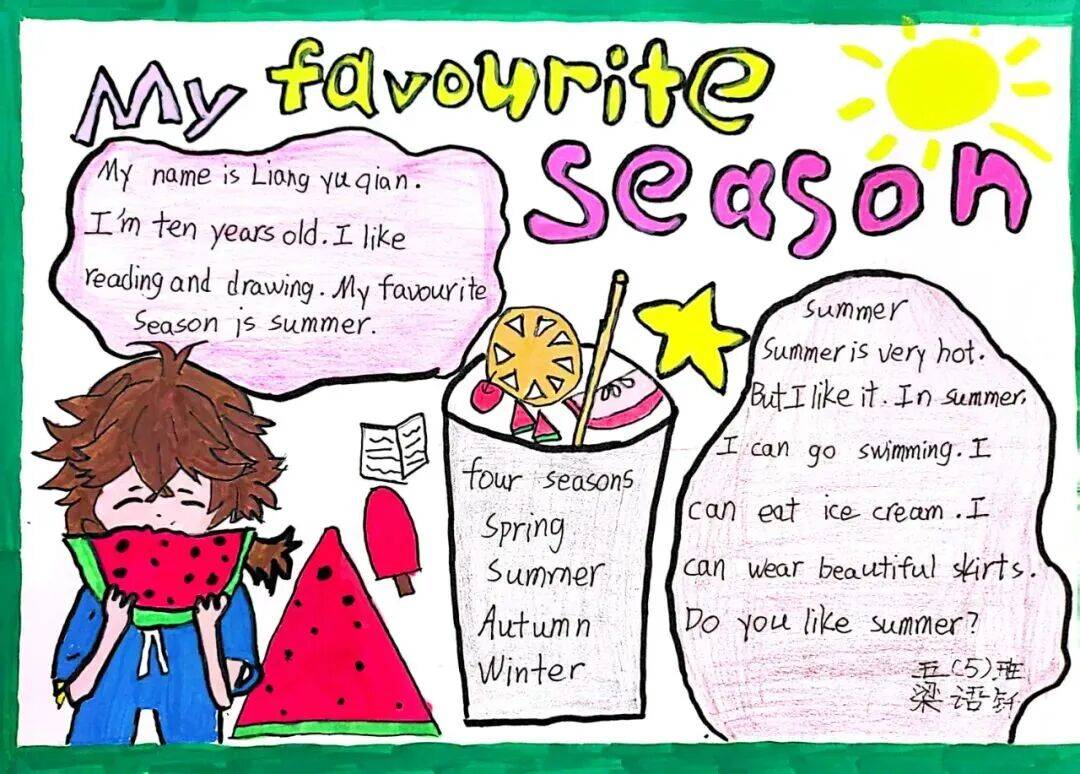 My favourite
season
My name is Liang yu qian.
I'm ten years old. I like
reading and drawing. My favourite
Season is summer.
four seasons
Spring
Summer
Autumn
Winter
summer
Summer is very hot.
But I like it. In summer,
I can go swimming. I
can eat ice cream. I
can wear beautiful skirts.
Do you like summer?
五(5)班
梁语钎